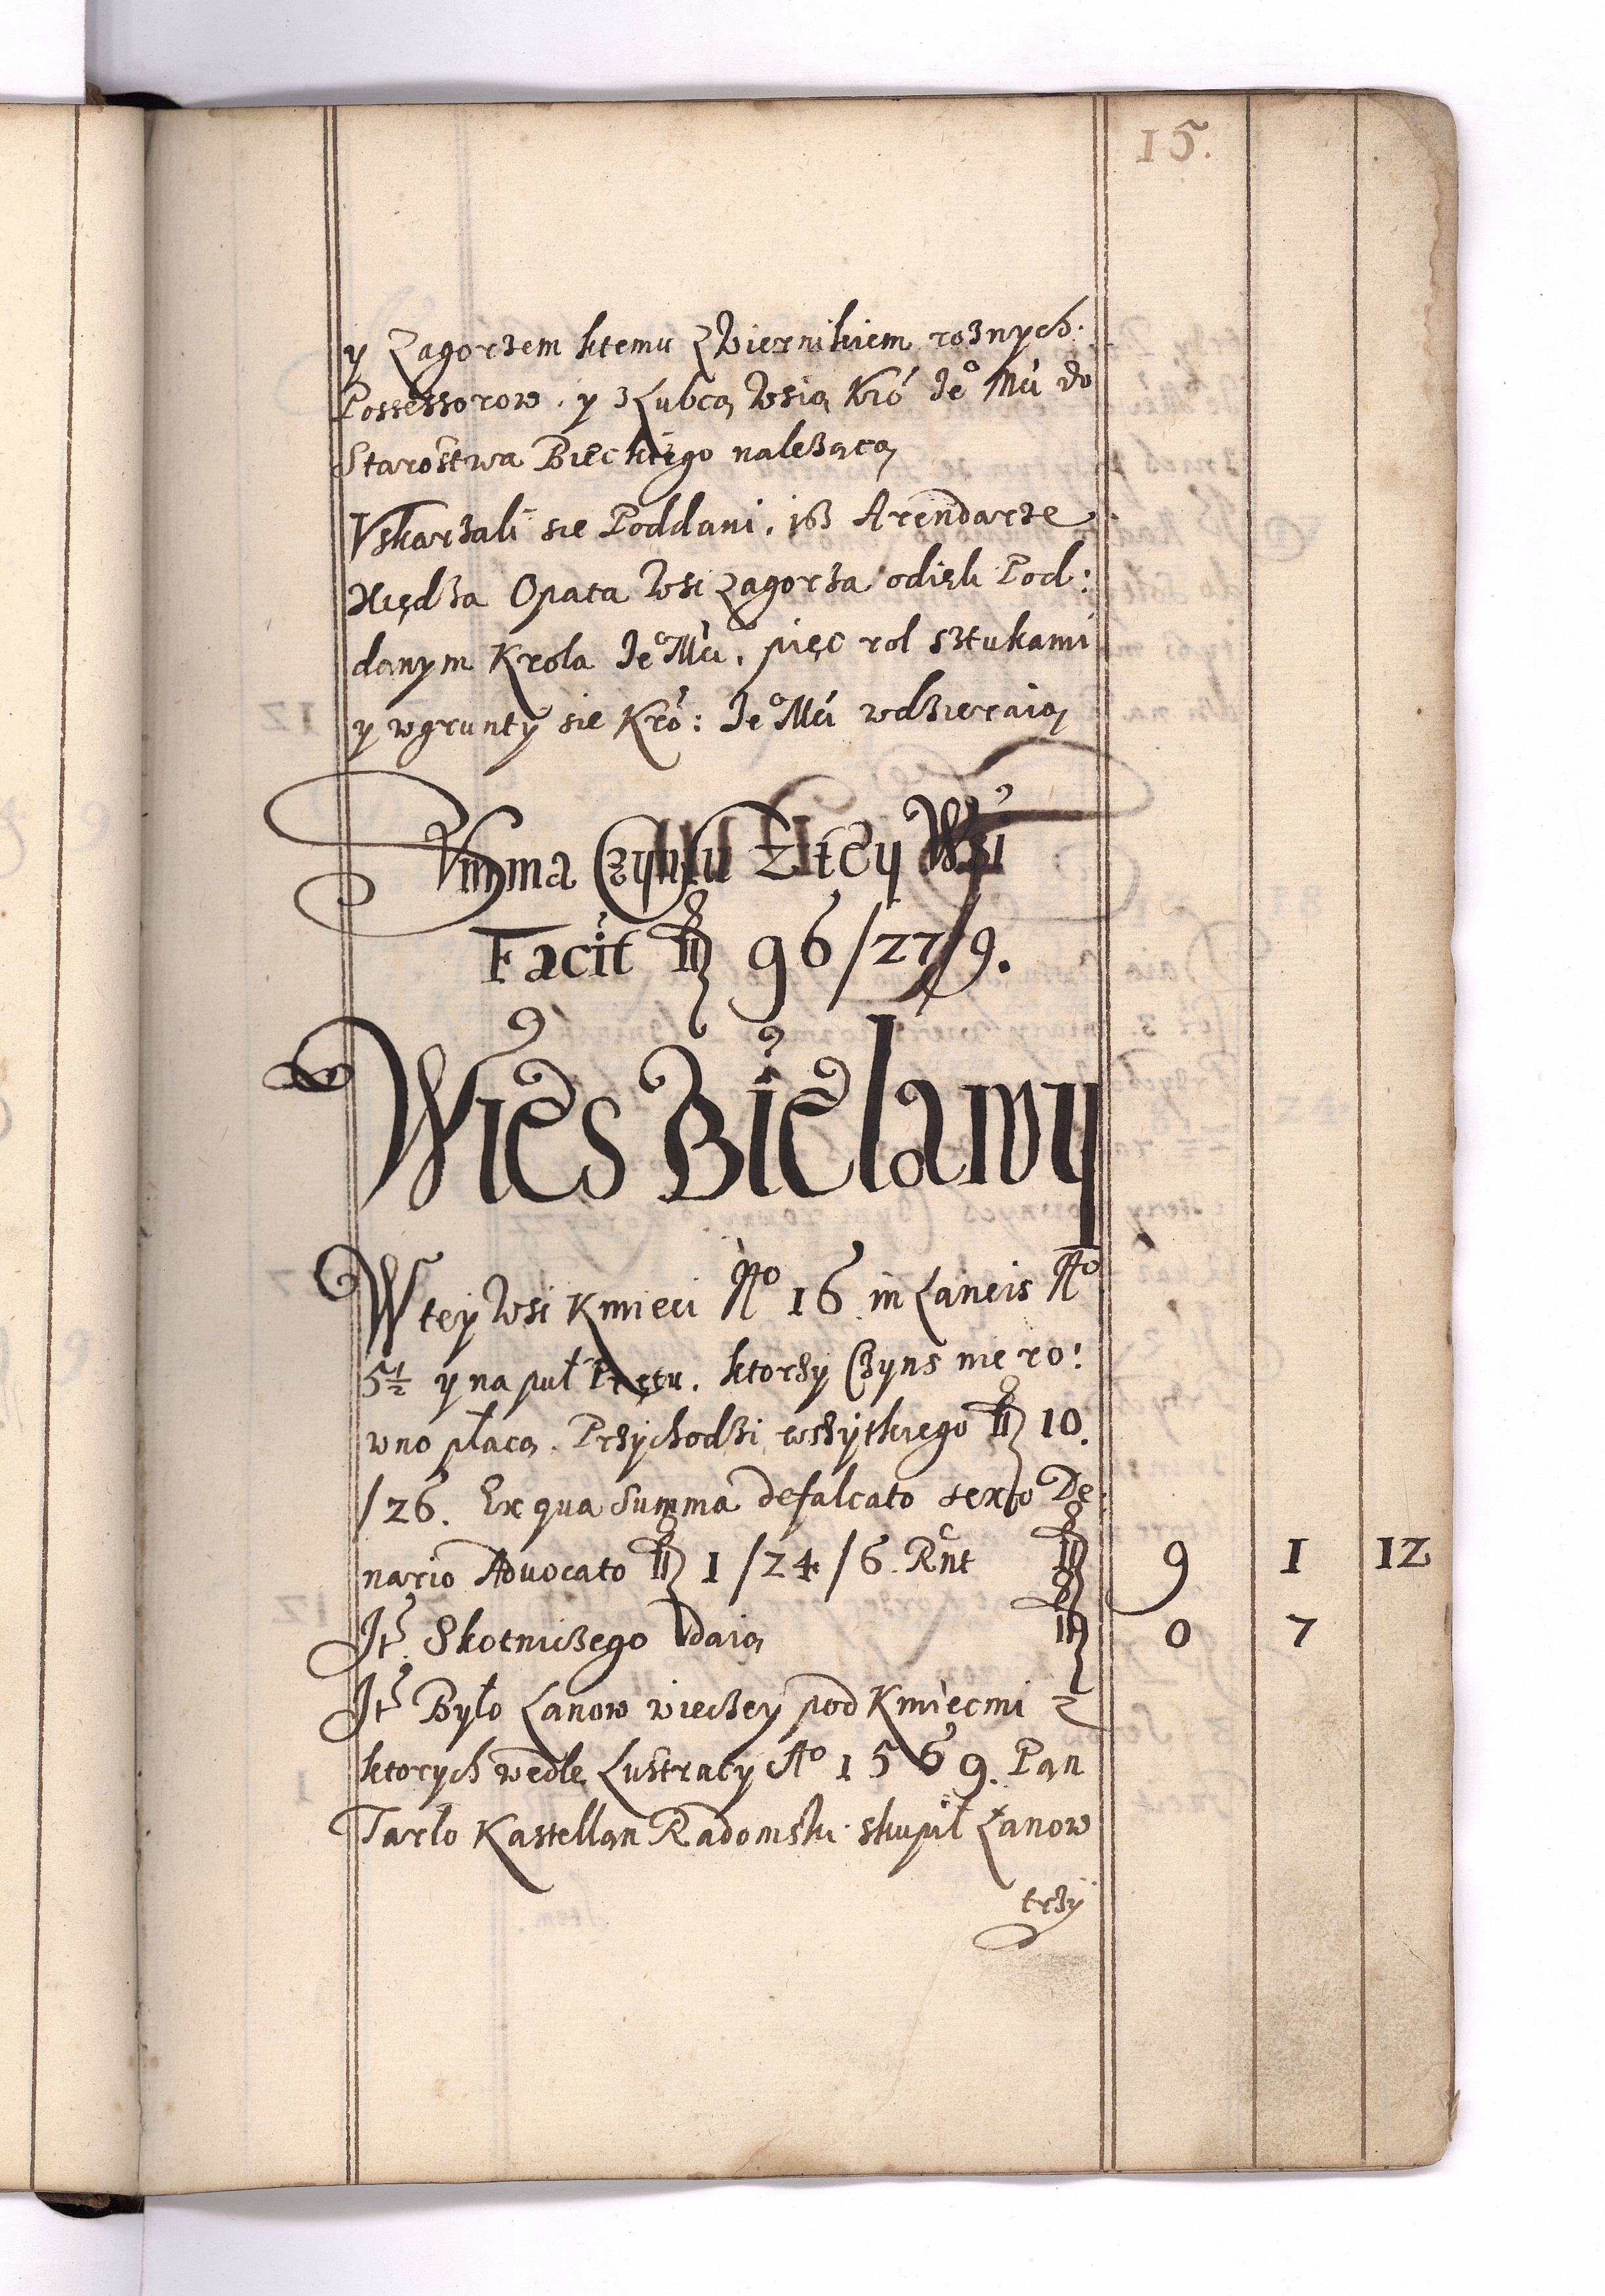 15.
y Zagorzem ktemu Zwiernikiem roznych.
Possessorow. y z Lubcą wsią Kró Jeº Mći do
Starostwa Bieckiego należącą
Vskarzali się Poddani, iż Arendarze
Xiędza Opata wsi Zagorza odięli Pod:
danym Krola JeºMći, pięc rol sztukami
y wgrunty sie Kró: JeºMći wdzieraią
Summa Czynszu Z tey Wsi
Facit fl 96/27/9.
Wies Bielawy
W tey wsi Kmieci Nº 16 in Laneis Nº
5½ y na puł Prętu. ktorzy Czyns nie ro:
wno płacą. Przychodzi wszytkiego fl 10.
/26. Ex qua Summa defalcato sexto De:
nario Advocato fl 1/24/6. Rnt fl 9 1 12
Jt Skotniczego daią fl 0 7
Jt Było Łanow wieczey pod Kmiecmi z
ktorych wedle Lustracy Aº 1569. Pan
Tarło Kastellan Radomski skupił Łanow
trzy